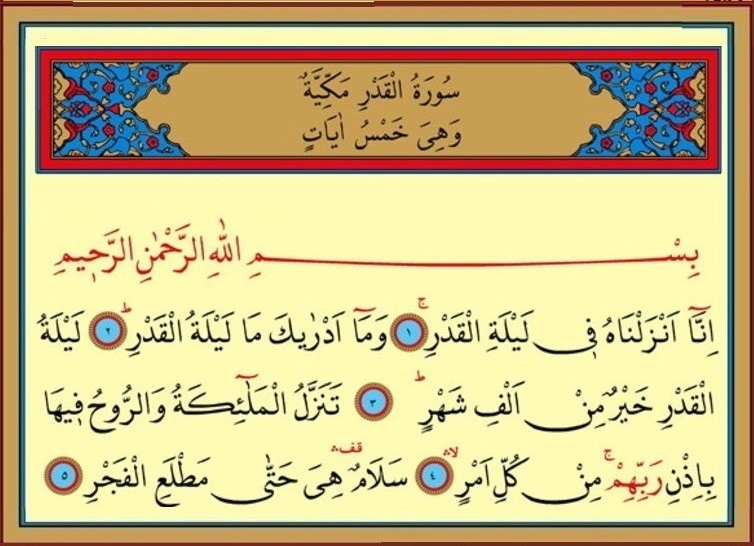 سُورَةُ الْقَدْرِ مَكِّيَّةٌ
وَهِىَ خَمْسُ اٰيَاتٍ
بِسْمِ اللّٰهِ الرَّحْمٰنِ الرَّح۪يمِ
اِنَّٓا اَنْزَلْنَاهُ ف۪ى لَيْلَةِ الْقَدْرِۚ ﴿١﴾ وَمَٓا اَدْرٰيكَ مَا لَيْلَةُ الْقَدْرِؕ ﴿٢﴾ لَيْلَةُ
الْقَدْرِ خَيْرٌ مِنْ اَلْفِ شَهْرٍؕ ﴿٣﴾ تَنَزَّلُ الْمَلٰٓئِكَةُ وَالرُّوحُ ف۪يهَا
بِاِذْنِ رَبِّهِمْۚ مِنْ كُلِّ اَمْرٍۙۛ ﴿٤﴾ سَلَامٌ قف۠ۛ هِىَ حَتّٰى مَطْلَعِ الْفَجْرِ ﴿٥﴾